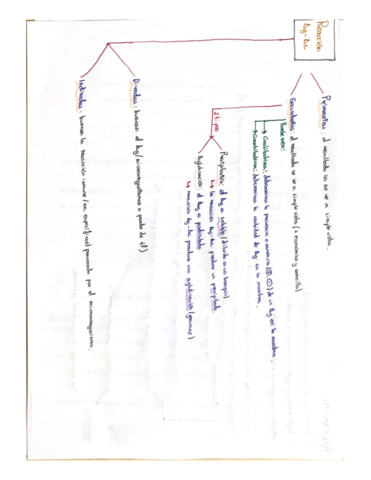 Reacción
Ag-Ac
Primarias: el resultado no se ve a simple vista.
Secundarias: el resultado se ve a simple vista (+ económico y sencillo)
Puede ser:
→ Cualitativa: determina la presencia o ausencia (⊕, ⊖) de un Ag en la muestra.
→ Cuantitativa: determina la cantidad de Ag en la muestra.
2 tipos
Precipitación: el Ag es soluble (diluido en un tampón)
↳ la reacción Ag-Ac produce un precipitado.
Aglutinación: el Ag es particulado
↳ reacción Ag-Ac produce una aglutinación (grumos)
Directas: buscan el Ag/microorganismo a partir de él)
Indirectas: buscan la reacción inmune/Ac específico provocado por el microorganismo.